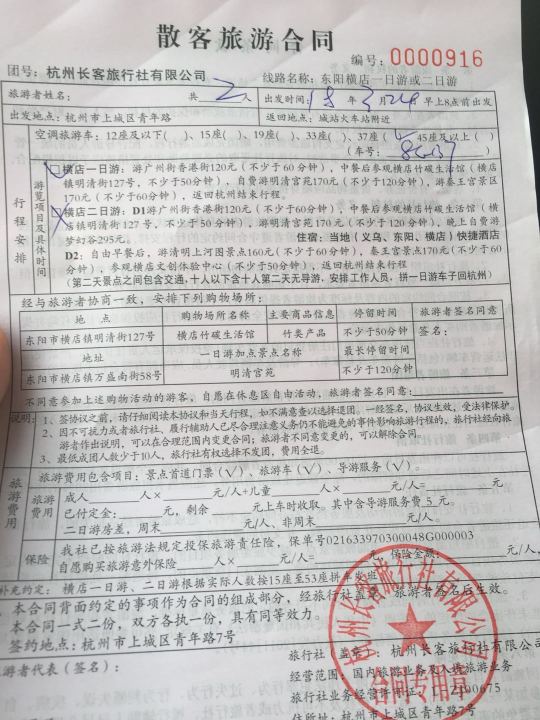 散客旅游合同
编号：0000916
团号：杭州长客旅行社有限公司
线路名称：东阳横店一日游或二日游
旅游者姓名： 共2人
出发时间： 年3 24早上8点前出发
出发地点：杭州市上城区青年路
返回地点：城站火车站附近
空调旅游车：12座及以下( )、15座( )、19座( )、33座( )、37座( )、45座及以上( )
(车号： )
行程安排
游览项目及具体时间
横店一日游：游广州街香港街120元(不少于60分钟)，中餐后参观横店竹碳生活馆(横店
镇明清街127号，不少于50分钟)，自费游明清宫苑170元(不少于120分钟)，游秦王宫景区
170元(不少于60分钟)，返回杭州结束行程。
横店二日游：D1游广州街香港街120元(不少于60分钟)，中餐后参观横店竹碳生活馆(横
店镇明清街127号，不少于50分钟)，游明清宫苑170元(不少于120分钟)，晚上自费游
梦幻谷295元。 住宿：当地(义乌、东阳、横店)快捷酒店
D2：自由早餐后，游清明上河图景160元(不少于60分钟)，秦王宫景点170元(不少于60
分钟)，参观横店文创体验中心(不少于50分钟)，返回杭州结束行程
(第二天景点之间包含交通，十人以下含十人第二天无导游，安排工作人员，拼一日游车子回杭州)
经与旅游者协商一致，安排下列购物场所：
地 点 购物场所名称 主要商品信息 停留时间 旅游者签名同意
东阳市横店镇明清街127号 横店竹碳生活馆 竹类产品 不少于50分钟 签名：
地址 一日游加点景点名称 最长停留时间
东阳市横店镇万盛南街58号 明清宫苑 不少于120分钟
不同意参加上述购物活动的游客，自愿在休息区自由活动，旅游者签名同意：
说明：1、签协议之前，请仔细阅读本协议和当天行程，如不满意查以选择退团。一经签名，协议生效，受法律保护。
2、因不可抗力或者旅行社、履行辅助人已尽合理注意义务仍不能避免的事件影响旅游行程的，旅行社经向旅
游者作出说明，可以在合理范围内变更合同；旅游者不同意变更的，可以解除合同。
3、最低成团人数少于10人，旅行社有权选择不发团，费用全退。
旅游费用
旅游费用包含项目：景点首道门票(√)、旅游车(√)、导游服务(√)。
旅游费用
成人 人× 元/人+儿童 人× 元/人= 元。
已付定金： 元，剩余 元上车时收取。其中含导游服务费5元。
二日游房差，周末 元/人、非周末 元/人。
保险
我社已按旅游法规定投保旅游责任险，保单号021633970300048G000003
自愿购买旅游意外保险 人× 元/人= 元，保险金额： 元
补充约定：横店一日游、二日游根据实际人数按15座至53座拼车发班
本合同背面约定的事项作为合同的组成部分，经旅行社盖章、旅游者签名后生效。
本合同一式二份，双方各执一份，具有同等效力。
签约地点：杭州市上城区青年路7号
游者代表(签名)：
旅行社(盖章)：杭州长客旅行社有限公
经营范围：国内旅游业务及入境旅游业务
旅行社业务经营许可证：
住所地：杭州市上城区青年路7号
杭州长客旅行社有限公司
合同专用章